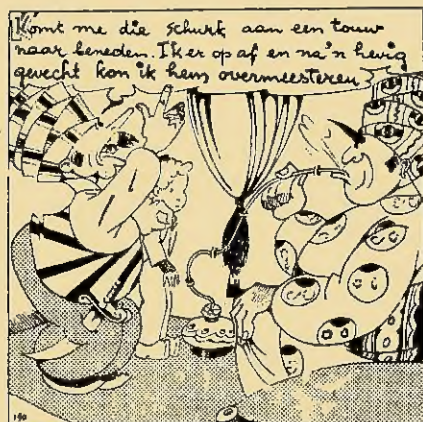 Komt me die schurk aan een touw
naar beneden. Ik er op af en na'n hevig
gevecht kon ik hem overmeesteren
190